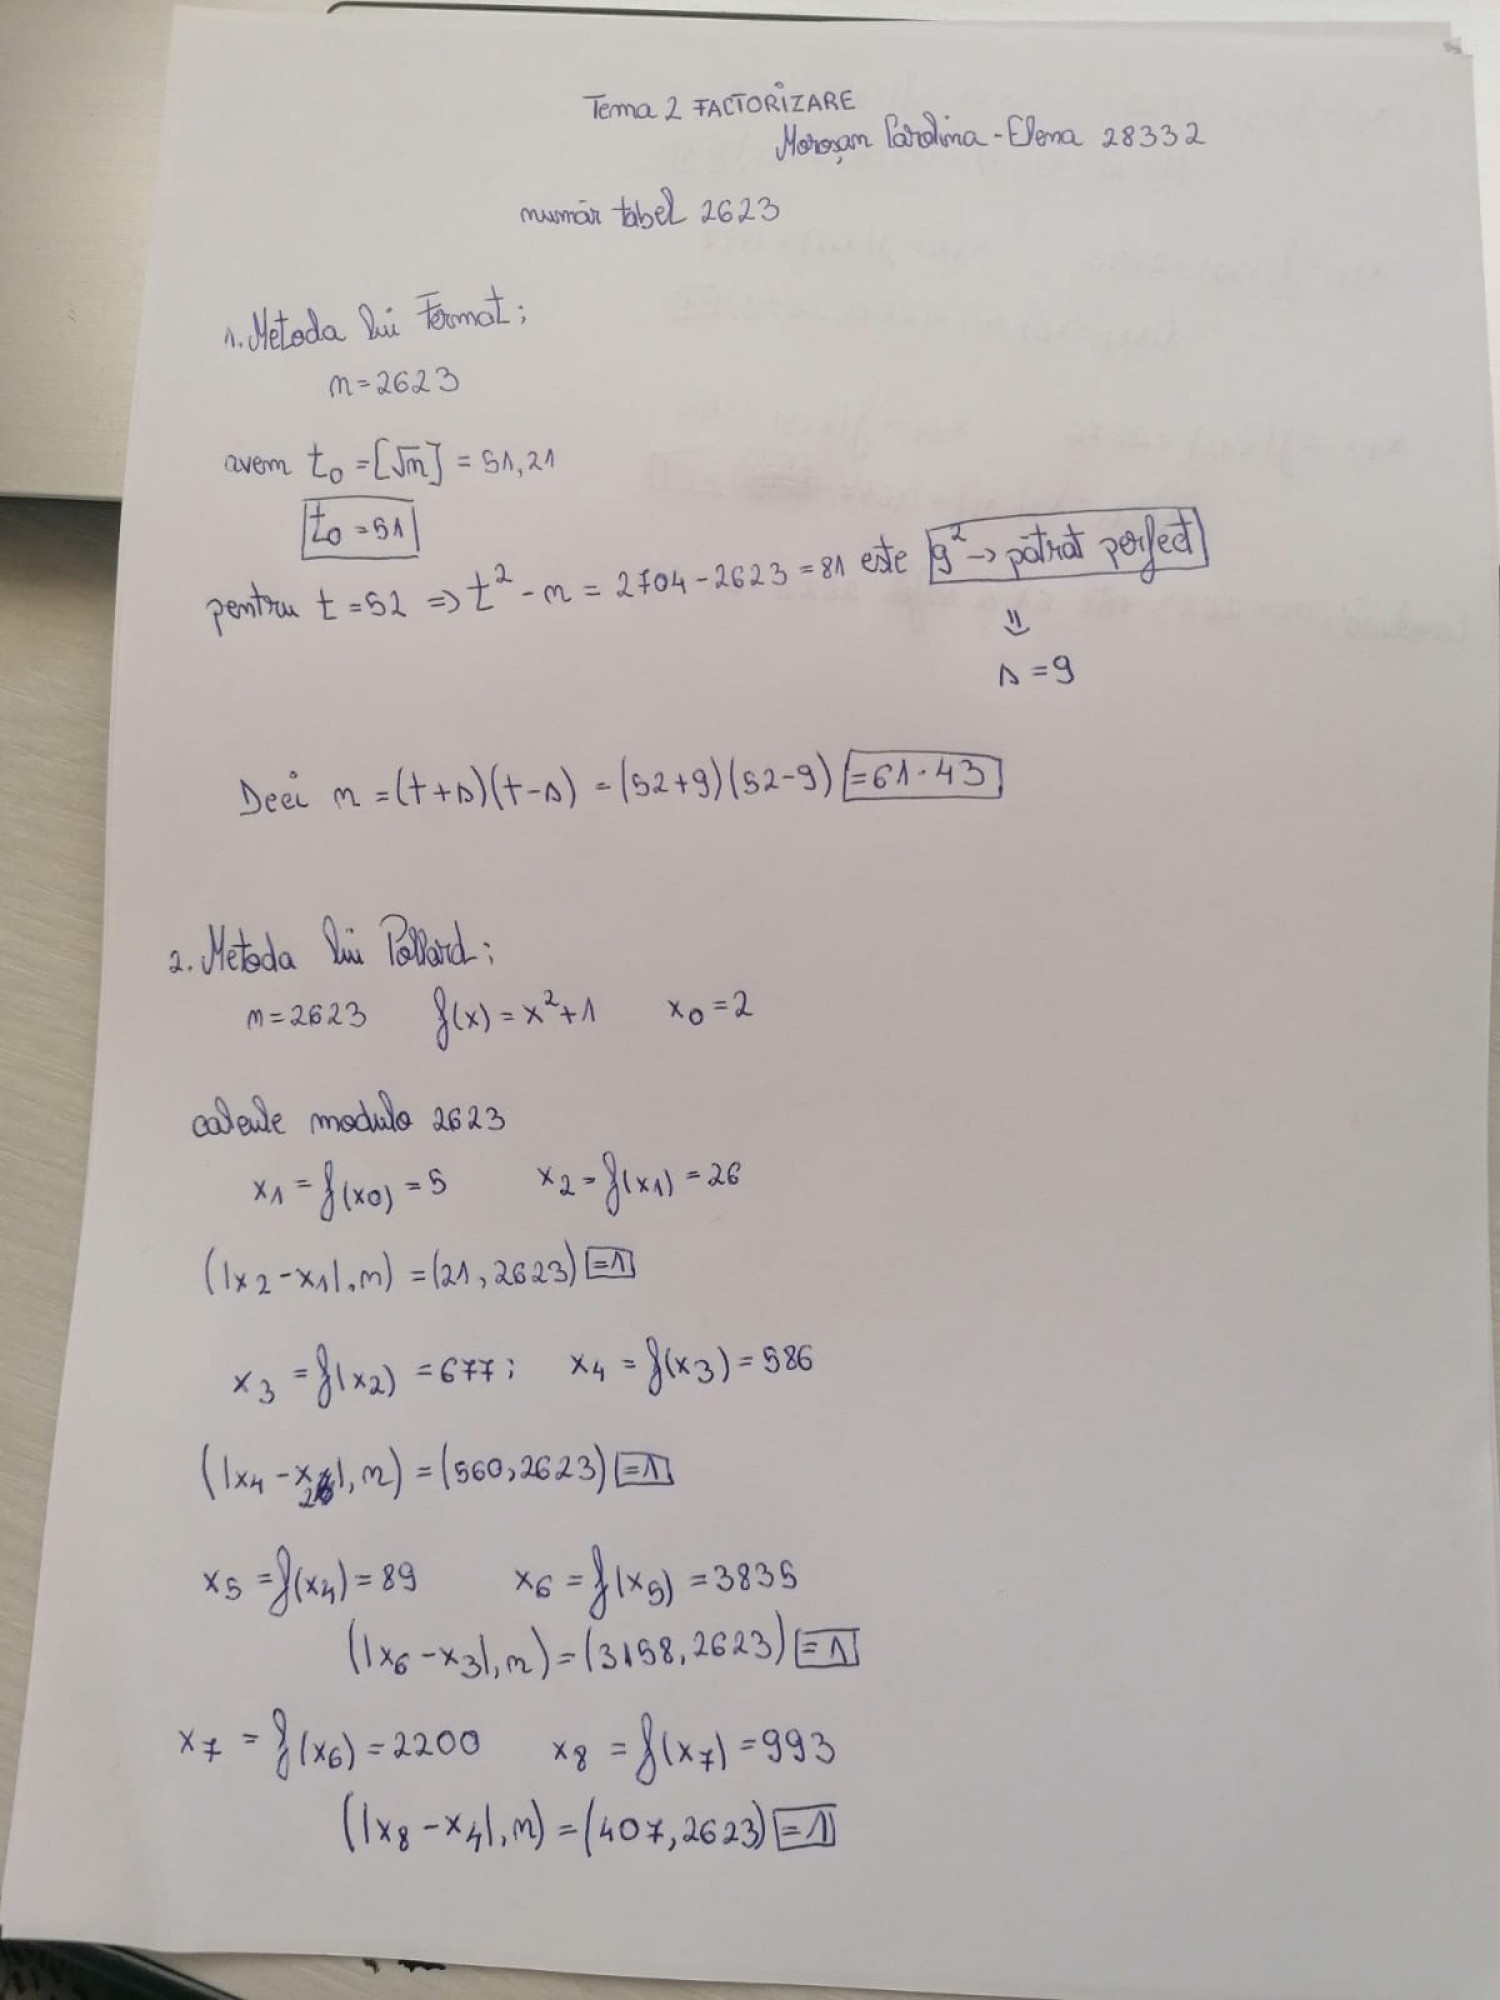 Tema 2 FACTORIZARE
Moroșan Carolina-Elena 28332
număr tabel 2623
1. Metoda lui Fermat:
n=2623
avem t0 = [√n] = 51,21
t0 = 51
pentru t = 52 => t² - n = 2704 - 2623 = 81 este 9² -> pătrat perfect
⇓
s = 9
Deci n = (t+s)(t-s) = (52+9)(52-9) = 61·43
2. Metoda lui Pollard:
n=2623 f(x) = x²+1 x0 = 2
calcule modulo 2623
x1 = f(x0) = 5 x2 = f(x1) = 26
(|x2 - x1|, n) = (21, 2623) = 1
x3 = f(x2) = 677; x4 = f(x3) = 586
(|x4 - x2|, n) = (560, 2623) = 1
x5 = f(x4) = 89 x6 = f(x5) = 3835
(|x6 - x3|, n) = (3158, 2623) = 1
x7 = f(x6) = 2200 x8 = f(x7) = 993
(|x8 - x4|, n) = (407, 2623) = 1